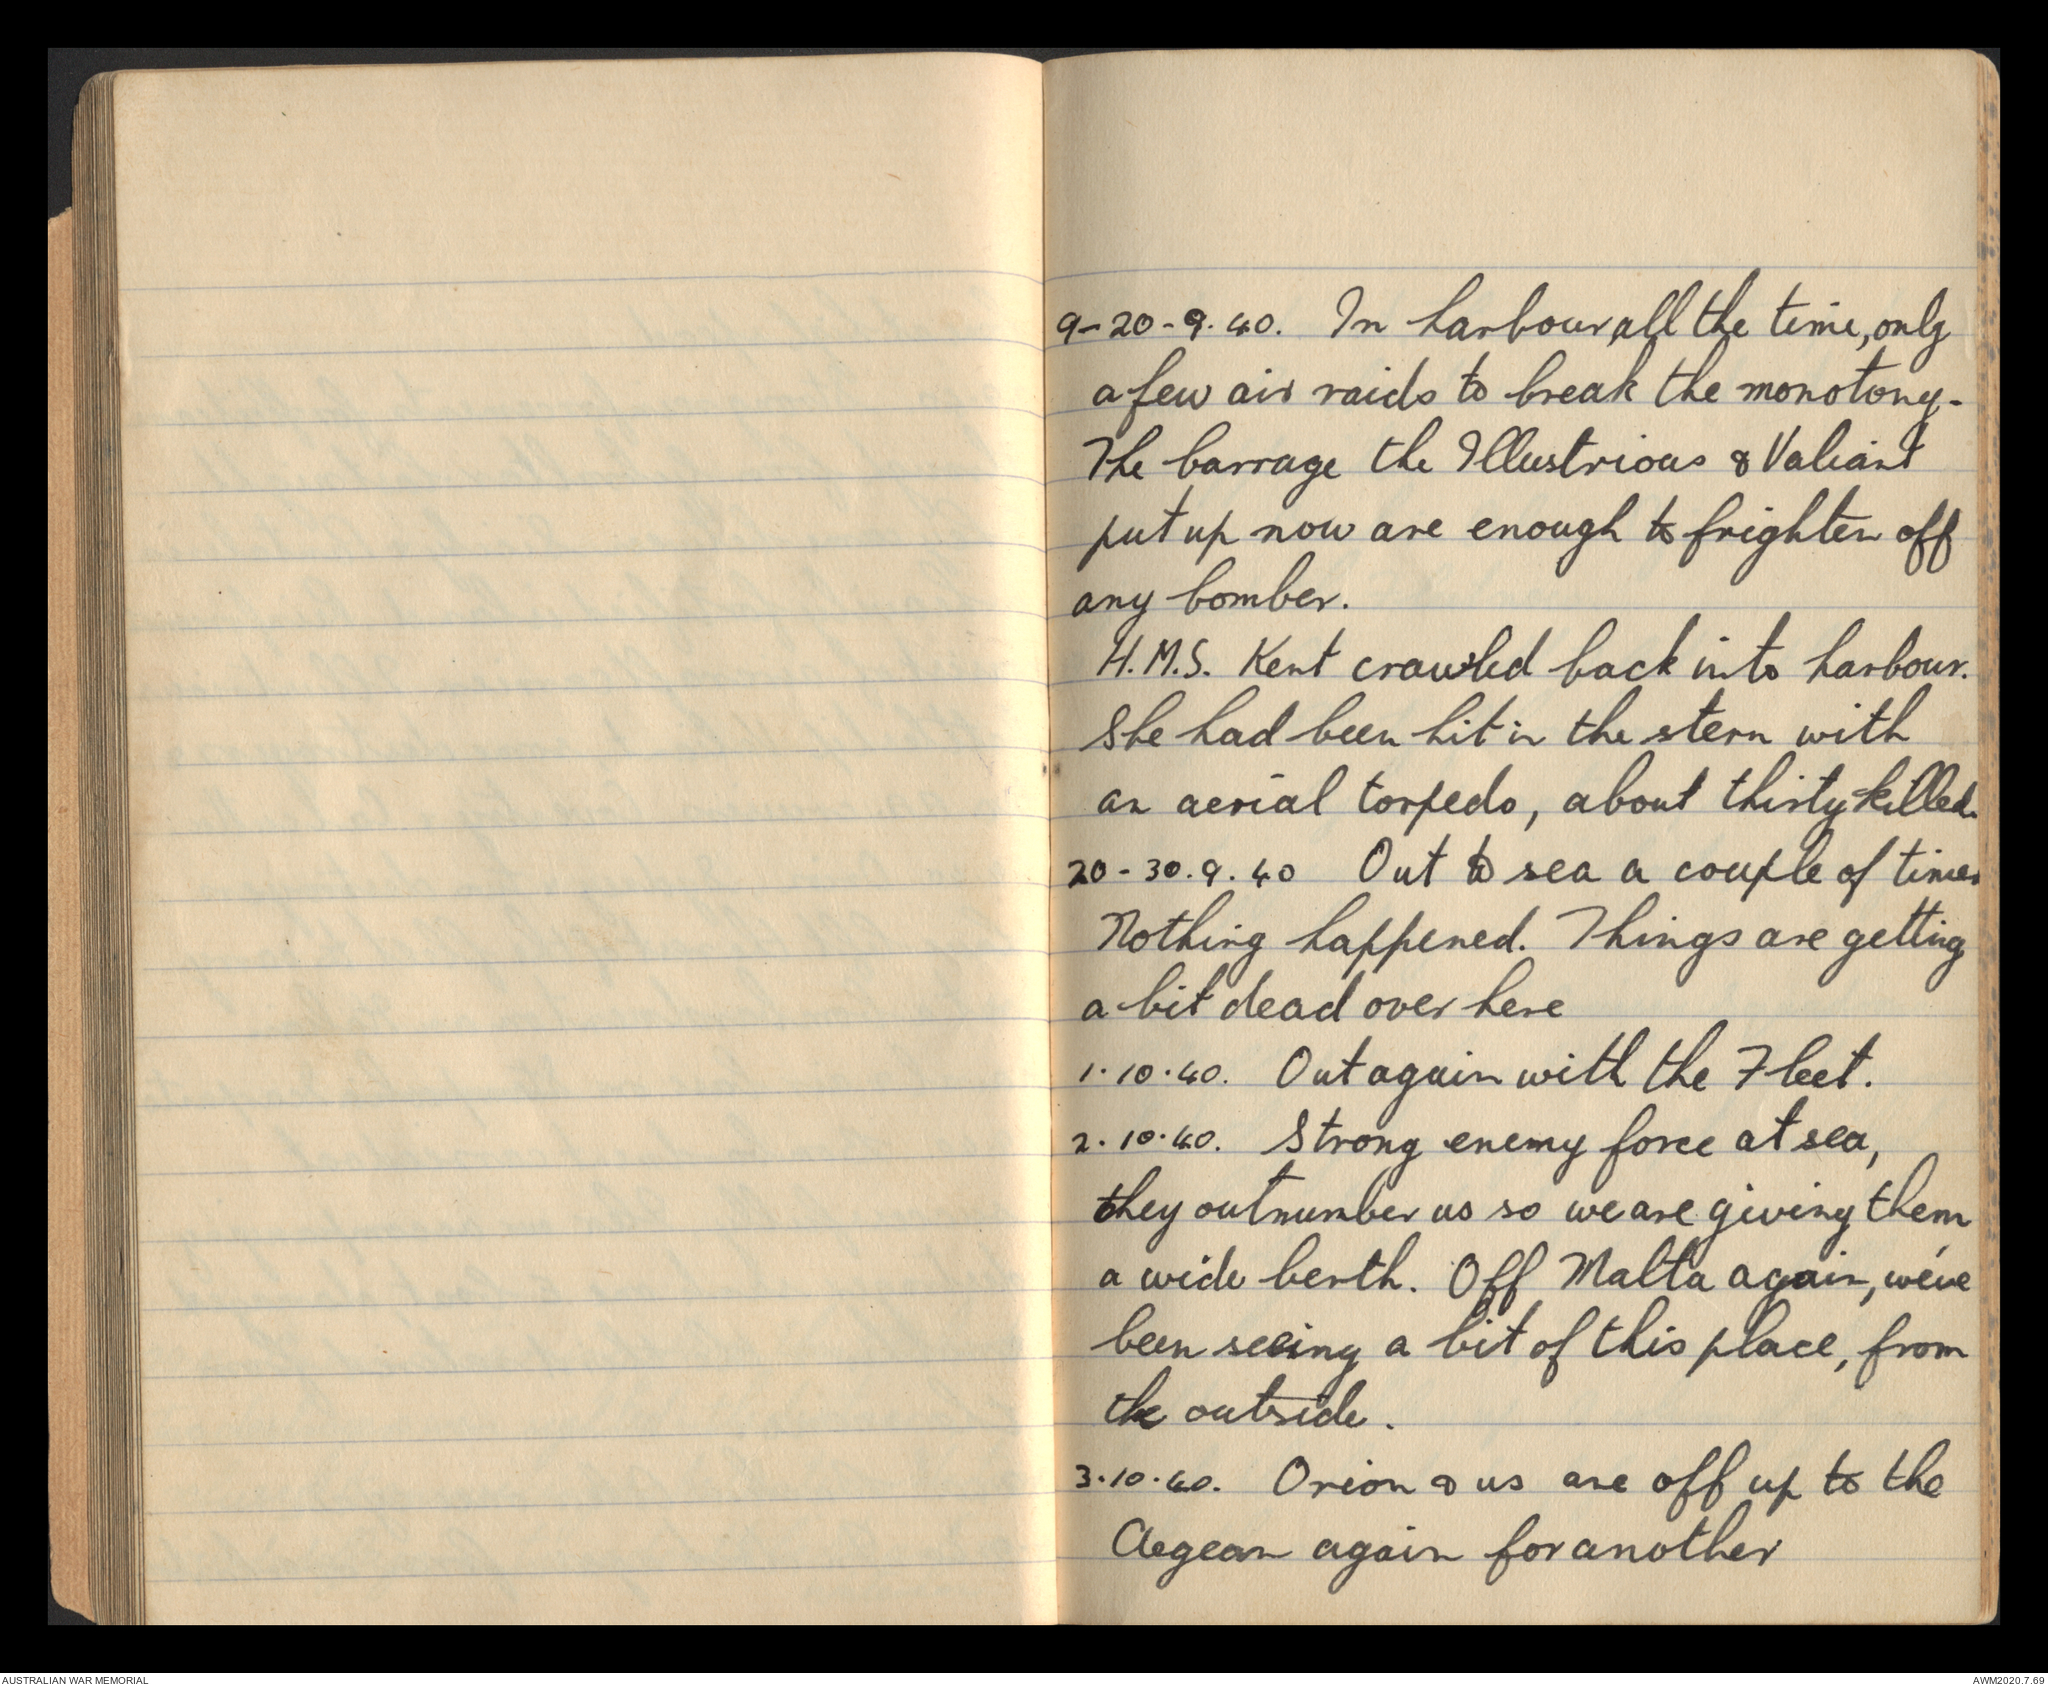 9-20-9.40. In harbour, all the time, only
a few air raids to break the monotony.
The barrage the Illustrious & Valiant
put up now are enough to frighten off
any bomber.
H.M.S. Kent crawled back into harbour.
She had been hit in the stern with
an aerial torpedo, about thirty killed.
20-30.9.40 Out to sea a couple of times
Nothing happened. Things are getting
a bit dead over here
1.10.40. Out again with the Fleet.
2.10.40. Strong enemy force at sea,
they outnumber us so we are giving them
a wide berth. Off Malta again, we've
been seeing a bit of this place, from
the outside.
3.10.40. Orion & us are off up to the
Aegean again for another
AUSTRALIAN WAR MEMORIAL
AWM2020.7.69